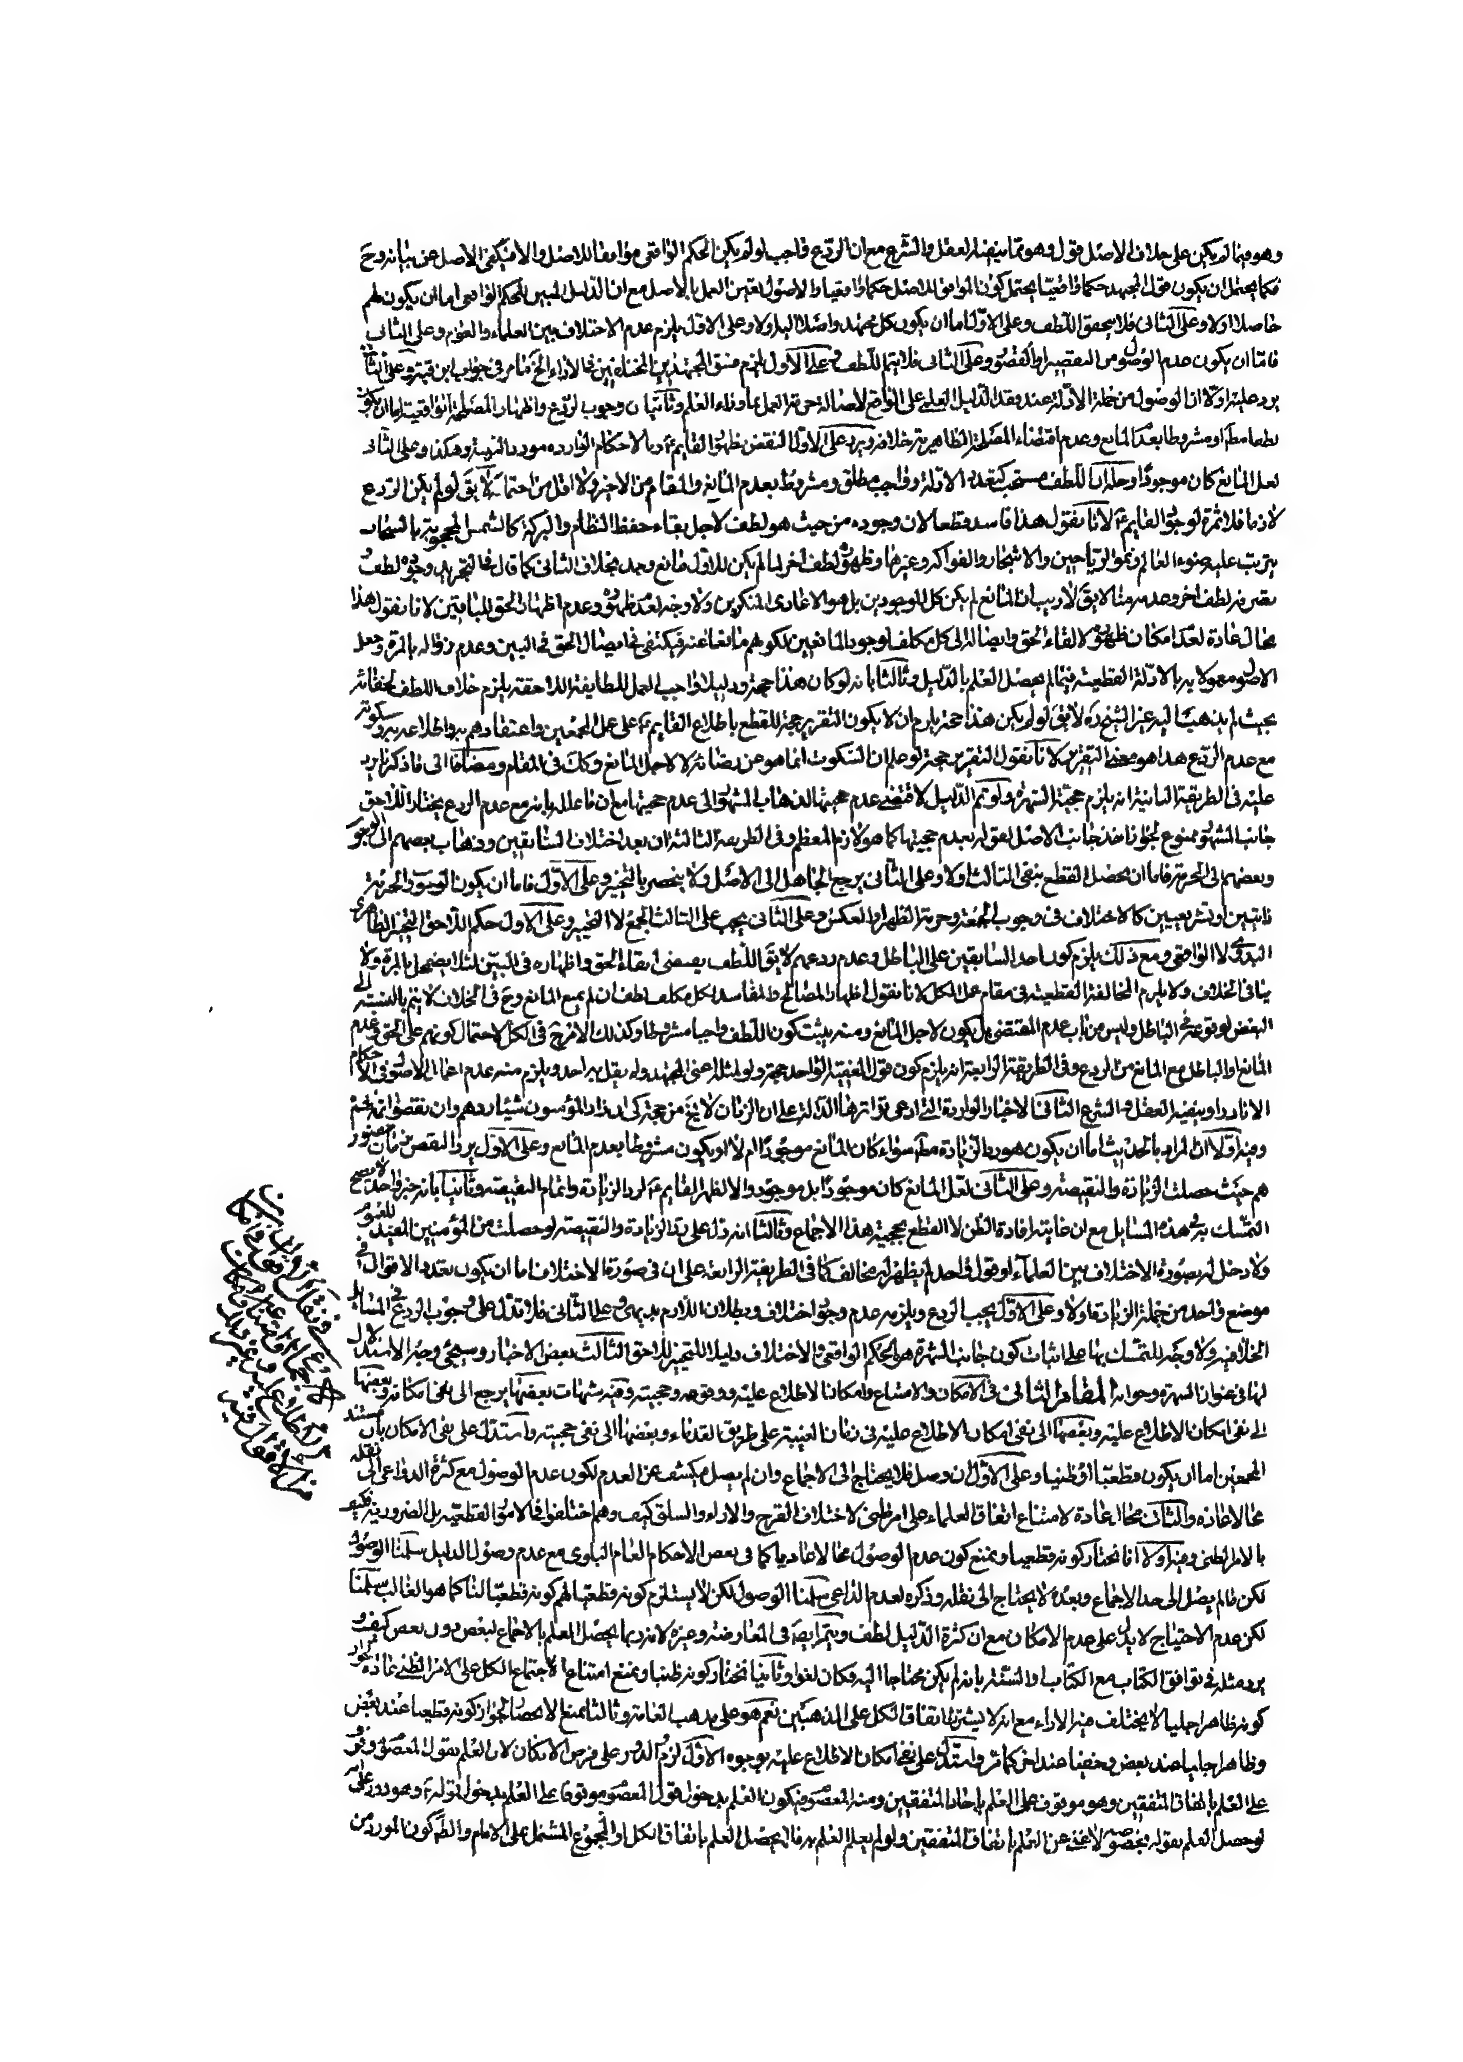 وهو فيما لم يكن على خلاف الاصل فنقول وهو مما ينفيه العقل والشرع مع ان الردع واجب لو لم يكن الحكم الواقعى موافقا للاصل والا فيكفى الاصل عن بيانه وح
فكما يحتمل ان يكون قول المجتهد حكما واقعيا يحتمل كون الموافق للاصل حكما واقعيا والاصول تعين العمل بالاصل مع ان الدليل المبين للحكم الواقعى اما ان يكون لهم
حاصلا اولا وعلى الثانى فلا يتحقق اللطف وعلى الاول اما ان يكون كل مجتهد واصلا اليه اولا وعلى الاول يلزم عدم الاختلاف بين العلماء والعوام وعلى الثانى
فاما ان يكون عدم الوصول من التقصير او القصور وعلى الثانى فلا يتم اللطف وعلى الاول يلزم فسق المجتهدين المختلفين فى الاراء الخ كما مر فى جواب ابن قبة وعلى الثانى
يرد عليه اولا ان الوصول من جملة الادلة عند فقد الدليل العلمى على الواقع لاصالة حرمة العمل بما وراء العلم وثانيا ان وجوب الردع واظهار المصلحة الواقعية اما ان يكون
لطفا مطلقا او مشروطا بعدم المانع وعدم اقتضاء المصلحة الظاهرية خلافه ويرد على الاول النقض بظهور القايم ع وبالاحكام الواردة مورد التقية وهكذا وعلى الثانى
لعل المانع كان موجودا وحله ان اللطف مستحب كتعدد الادلة وواجب مطلق ومشروط بعدم المانع والمقام من الاخير ولا اقل من احتماله لا يق لو لم يكن الردع
لازما فلا ثمرة لوجود القايم ع لانا نقول هذا فاسد قطعا لان وجوده من حيث هو لطف لاجل بقاء حفظ النظام والبركة كالشمس المحجوبة بالسحاب
يترتب عليه ضوء العالم ونمو الرياحين والاشجار والفواكه وغيرها وظهوره لطف اخر لما لم يكن للاول مانع وجد بخلاف الثانى كما قال فى التجريد وجوده لطف
تصرفه لطف اخر وعدمه منا لا يق لا ريب ان المانع لم يكن كل الموجودين بل هو الاعادى المنكرين ولا وجه لعدم ظهوره وعدم اظهار الحق للباقين لانا نقول هذا
محال عادة لعدم امكان ظهوره لالقاء الحق وايصاله الى كل مكلف لوجود المانعين لكونهم مانعا عنه فيكتفى فى ايصال الحق فى البين وعدم زواله بالمرة وجعل
الاصول معمولا به بالادلة القطعية فيما لم يحصل العلم بالدليل وثالثا بانه لو كان هذا حجة ودليلا واجب العمل للطايفة اللاحقة يلزم خلاف اللطف لخفائه
بحيث لم يذهب اليه غير الشيخ ره لا يق لو لم يكن هذا حجة يلزم ان لا يكون التقرير حجة للقطع باطلاع القايم ع على عمل المجمعين واعتقادهم به واطلاعه به وسكوته
مع عدم الردع هذا هو معنى التقرير لانا نقول التقرير حجة لو علم ان السكوت انما هو عن رضائه لا لاجل المانع وكك فى المقام ومضافا الى ما ذكرنا يرد
عليه فى الطريقة الثانية انه يلزم حجية الشهرة ولو تم الدليل لاقتضى عدم حجيتها لذهاب المشهور الى عدم حجيتها مع ان ما علله بانه مع عدم الردع يختار اللاحق
جانب المشهور ممنوع لجواز اخذ جانب الاصل لقوله بعدم حجيتها كما هو لازم المعظم وفى الطريقة الثالثة ان بعد اختلاف السابقين وذهاب بعضهم الى الوجوب
وبعضهم الى الحرمة فاما ان يحصل القطع بنفى الثالث اولا وعلى الثانى يرجع الجاهل الى الاصل ولا ينحصر بالتخيير وعلى الاول فاما ان يكون الوجوب والحرمة
ذاتيين او تشريعيين كالاختلاف فى وجوب الجمعة وحرمة الظهر او العكس وعلى الثانى يجب على الثالث الجمع لا التخيير وعلى الاول حكم اللاحق التخيير الظاهرى
البدوى لا الواقعى ومع ذلك يلزم كون احد السابقين على الباطل وعدم ردعهم لا يق اللطف يقتضى ابقاء الحق واظهاره فى البين لئلا يضمحل بالمرة ولا
ينافى الخلاف ولا يلزم المخالفة القطعية فى مقام عمل الكل لانا نقول اظهار المصالح والمفاسد لكل مكلف لطف ان لم يمنع المانع وح فى الخلاف لا يتم بالنسبة الى
البعض لوقوعه فى الباطل وليس من باب عدم المقتضى بل يكون لاجل المانع ومنه يثبت كون اللطف واجبا مشروطا وكذلك الامر فى الكل لاحتمال كونهم على الحق وعدم
المانع او الباطل مع المانع من الردع وفى الطريقة الرابعة انه يلزم كون قول الفقيه الواحد حجة ولو لمثله اعنى المجتهد ولم يقل به احد ويلزم منه عدم اعمال الاصول فى الاحكام
الا نادرا وينفيه العقل والشرع الثانى الاخبار الواردة التى ادعى تواترها الدالة على ان الزمان لا يخ من حجة كى ان زاد المؤمنون شيئا ردهم وان نقصوا اتمه لهم
وفيه اولا ان المراد بالحديث اما ان يكون هو رد الزيادة مطلقا سواء كان المانع موجودا ام لا او يكون مشروطا بعدم المانع وعلى الاول يرد النقص من زمان حضور
هم حيث حصلت الزيادة والنقيصة وعلى الثانى لعل المانع كان موجودا بل موجود والا لظهر القايم ع لرد الزيادة واتمام النقيصة وثانيا بانه خبر واحد لا يصح
التمسك به فى هذه المسايل مع ان غايته افادة الظن لا القطع بحجية هذا الاجماع وثالثا انه دل على رد الزيادة والنقيصة لو حصلت من المؤمنين المفيد للعموم
ولا دخل له بصورة الاختلاف بين العلماء او قول واحد لم يظهر له مخالف كما فى الطريقة الرابعة على ان فى صورة الاختلاف اما ان يكون تعدد الاقوال فى
موضع واحد من جملة الزيادة اولا وعلى الاول يجب الردع ويلزمه عدم وجود اختلاف وبطلان اللازم بديهى وعلى الثانى فلا تدل على وجوب الردع فى المسايل
الخلافية ولا وجه للتمسك بها على اثبات كون جانب الشهرة هو الحكم الواقعى والاختلاف دليلا للتخيير للاحق الثالث بعض الاخبار وسيجئ وجه الاستدلال
لها فى عنوان الشهرة وجوابه المقام الثانى فى الامكان والامتناع وامكان الاطلاع عليه ووقوعه وحجيته وفيه شبهات بعضها يرجع الى نفى امكانه وبعضها
الى نفى امكان الاطلاع عليه وبعضها الى نفى امكان الاطلاع عليه فى زمان الغيبة على طريق القدماء وبعضها الى نفى حجيته واستدل على نفى الامكان بان مستند
المجمعين اما ان يكون قطعيا او ظنيا وعلى الاول ان وصل فلا يحتاج الى الاجماع وان لم يصل فيكشف عن العدم لكون عدم الوصول مع كثرة الدواعى الى نقله
محالا عادة والثانى محال عادة لامتناع اتفاق العلماء على امر ظنى لاختلاف القرح والاراء والسلق كيف وهم اختلفوا فى الامور القطعية بل الضرورية فكيف
بالامر الظنى وفيه اولا انا نختار كونه قطعيا ونمنع كون عدم الوصول محالا عاديا كما فى بعض الاحكام العام البلوى مع عدم وصول الدليل سلمنا الوصول
لكن ما لم يصل الى حد الاجماع وبعده لا يحتاج الى نقله وذكره لعدم الداعى سلمنا الوصول لكن لا يستلزم كونه قطعيا لهم كونه قطعيا لنا كما هو الغالب سلمنا
لكن عدم الاحتياج لا يدل على عدم الامكان مع ان كثرة الدليل لطف ويثمر ايضا فى المعارضة وغيره لانه ربما يحصل العلم بالاجماع لبعض دون بعض كيف و
يرد مثله فى توافق الكتاب مع الكتاب او السنة بانه لم يكن محتاجا اليه فكان لغوا وثانيا نختار كونه ظنيا ونمنع امتناع الاجتماع الكل على الامر الظنى عادة لجواز
كونه ظاهرا جليا لا يختلف فيه الاراء مع انه لا يشترط اتفاق الكل على المذهبين نعم هو على مذهب العامة وثالثا نمنع الانحصار لجواز كونه قطعيا عند بعض
وظاهرا جليا عند بعض وخفيا عند اخر كما مر واستدل على نفى امكان الاطلاع عليه بوجوه الاول لزوم الدور على فرض الامكان لان العلم بقول المعصوم موقوف
على العلم باتفاق المتفقين وهو موقوف على العلم باحاد المتفقين ومنه المعصوم فيكون العلم بدخول قول المعصوم موقوفا على العلم بدخول قوله ع وهو دور على انه
لو حصل العلم بقوله بخصوصه لاغنى عن العلم باتفاق المتفقين ولو لم يعلم العلم به فلا يحصل العلم باتفاق الكل او المجموع المشتمل على الامام والظن كون المورد من